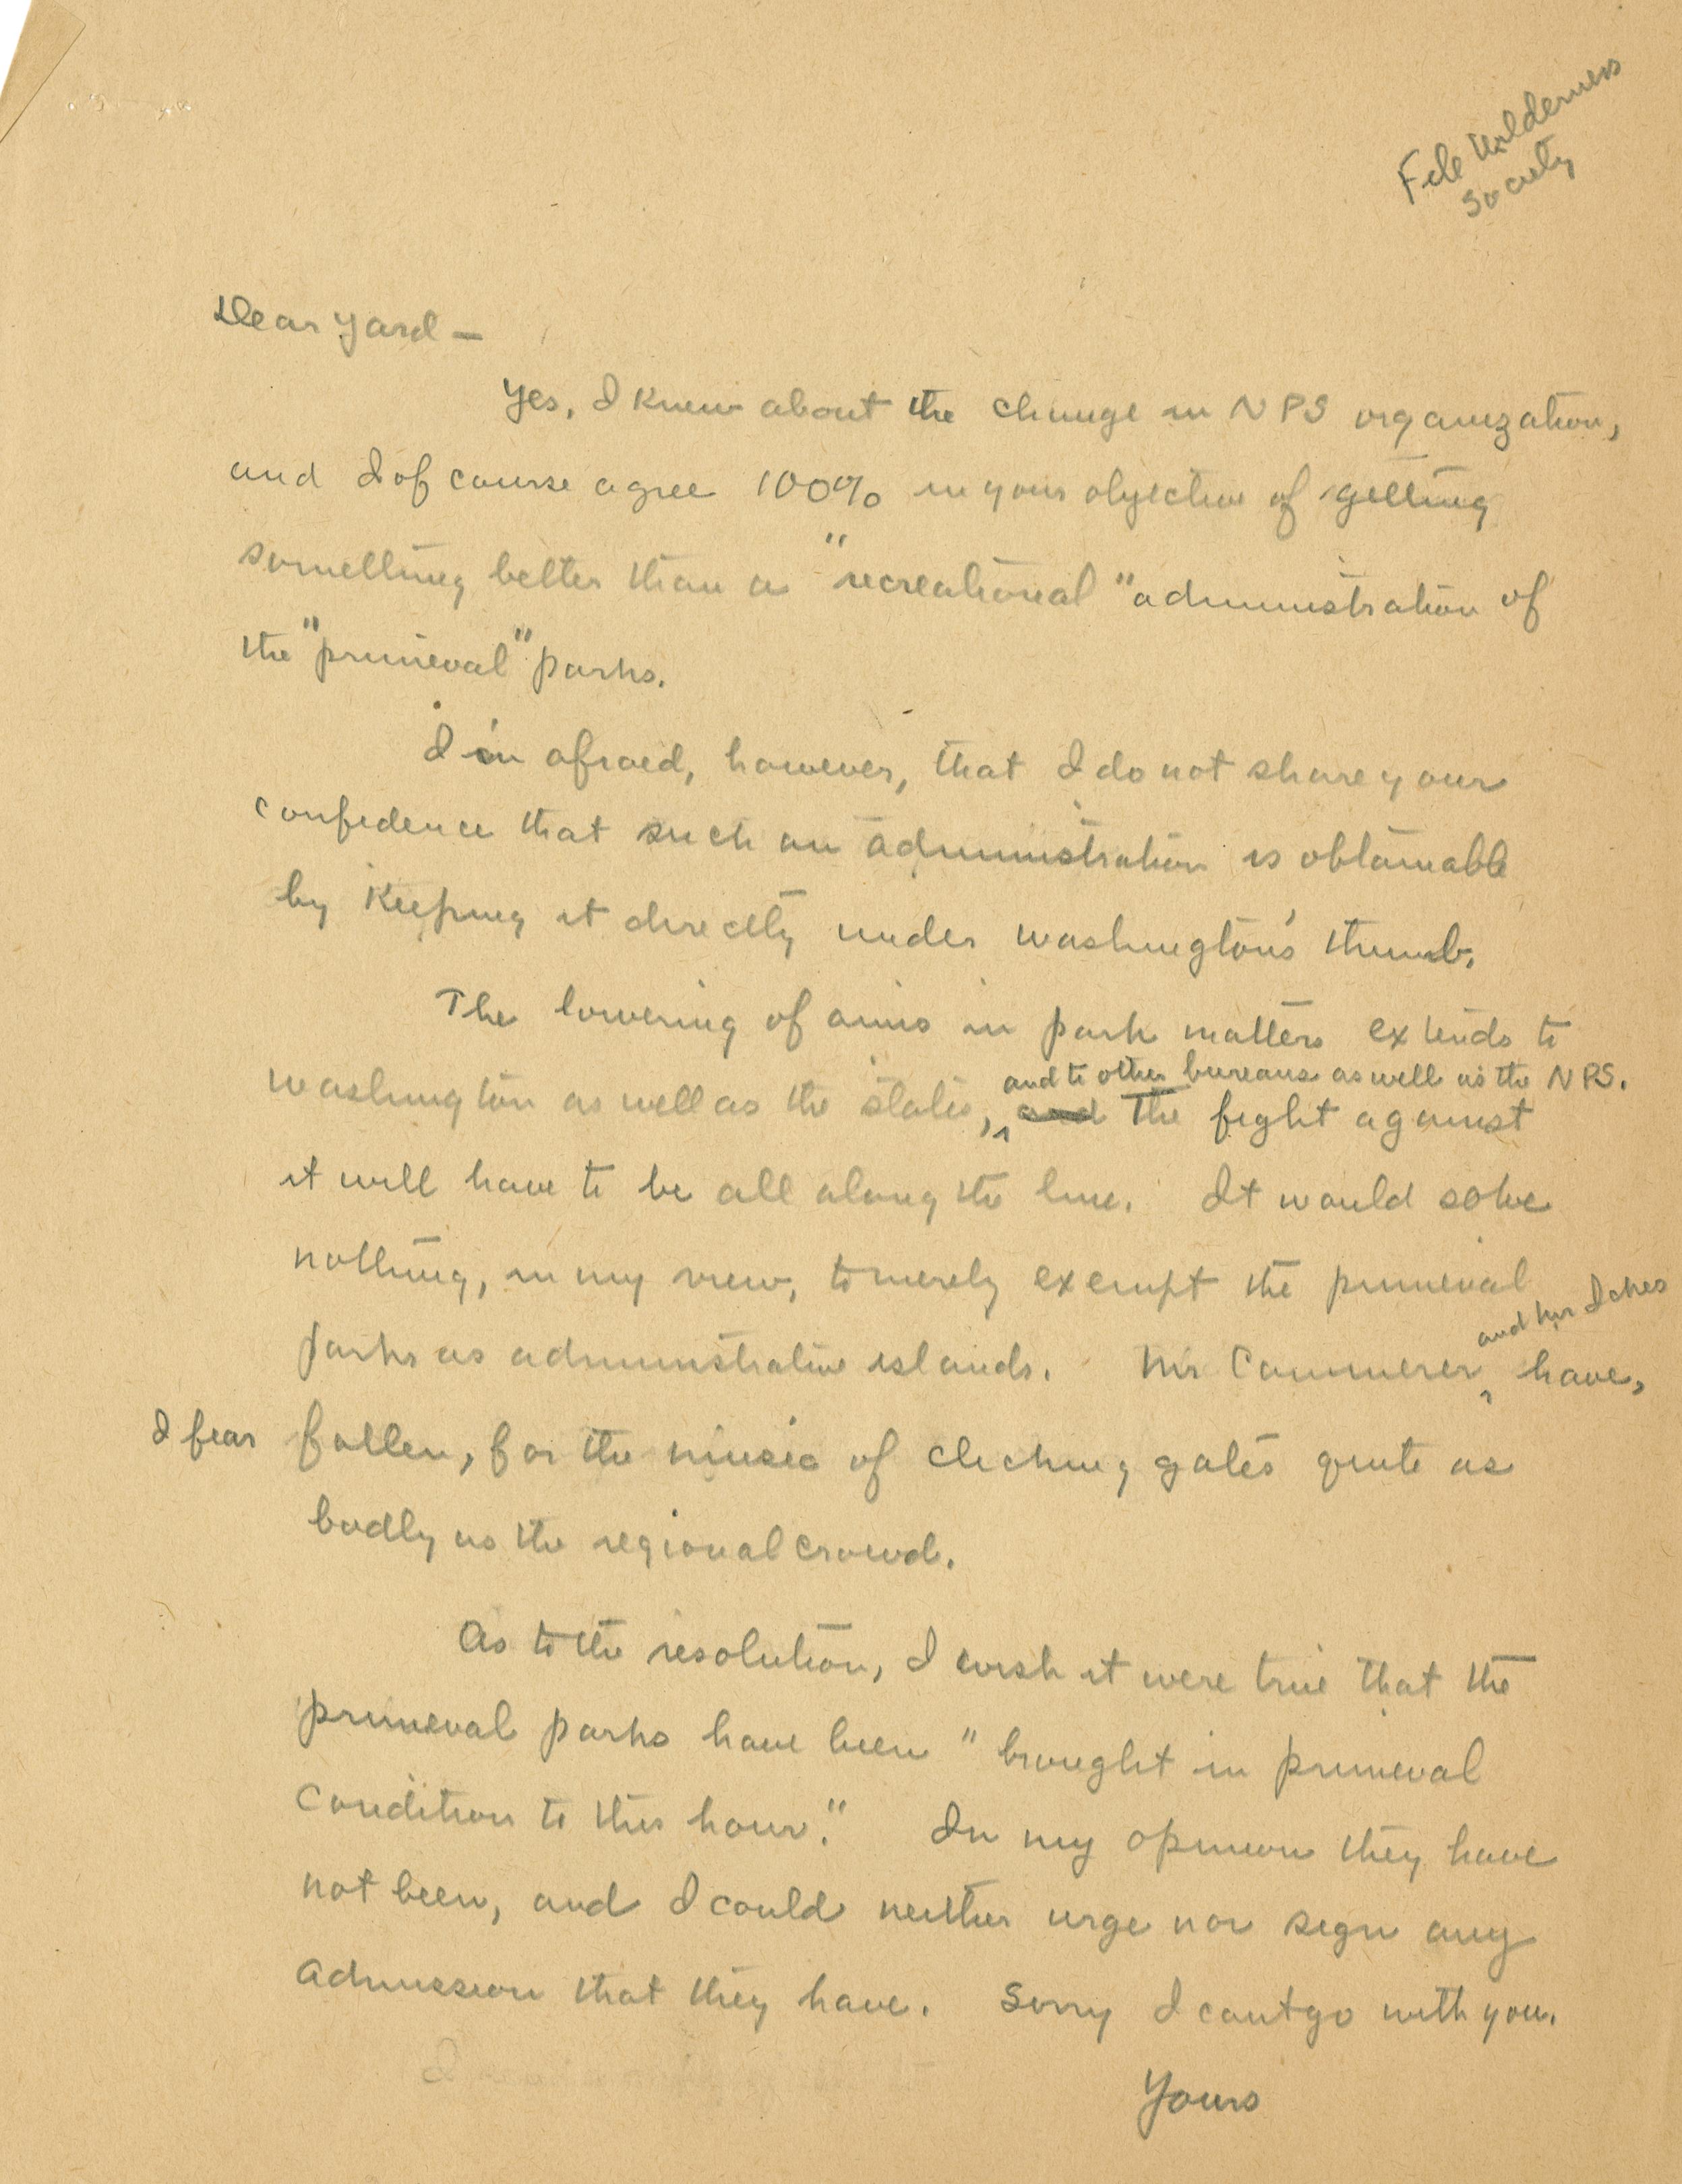 File Wilderness
Society
Dear Yard —
Yes, I knew about the change in NPS organization,
and I of course agree 100% in your objective of getting
something better than a "recreational" administration of
the "primeval" parks.
I'm afraid, however, that I do not share your
confidence that such an administration is obtainable
by keeping it directly under Washington's thumb.
The lowering of aims in park matters extends to
and to other bureaus as well as the NPS.
Washington as well as the states, and The fight against
it will have to be all along the line. It would solve
nothing, in my view, to merely exempt the primeval
and Mr Ickes
parks as administrative islands. Mr Cammerer have,
I fear fallen, for the music of clicking gates quite as
badly as the regional crowd.
As to the resolution, I wish it were true that the
primeval parks have been "brought in primeval
condition to this hour." In my opinion they have
not been, and I could neither urge nor sign any
admission that they have. Sorry I cant go with you.
Yours